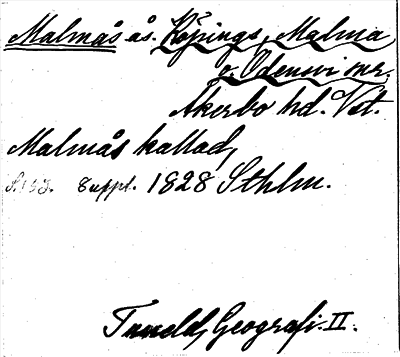 Malmås ås. Köpings, Malma
o. Odensvi snr.
Åkerbo hd. Vstl.
Malmås kallad,
S. 153. 8 uppl. 1828 Sthlm.
Tuneld, Geografi. II.